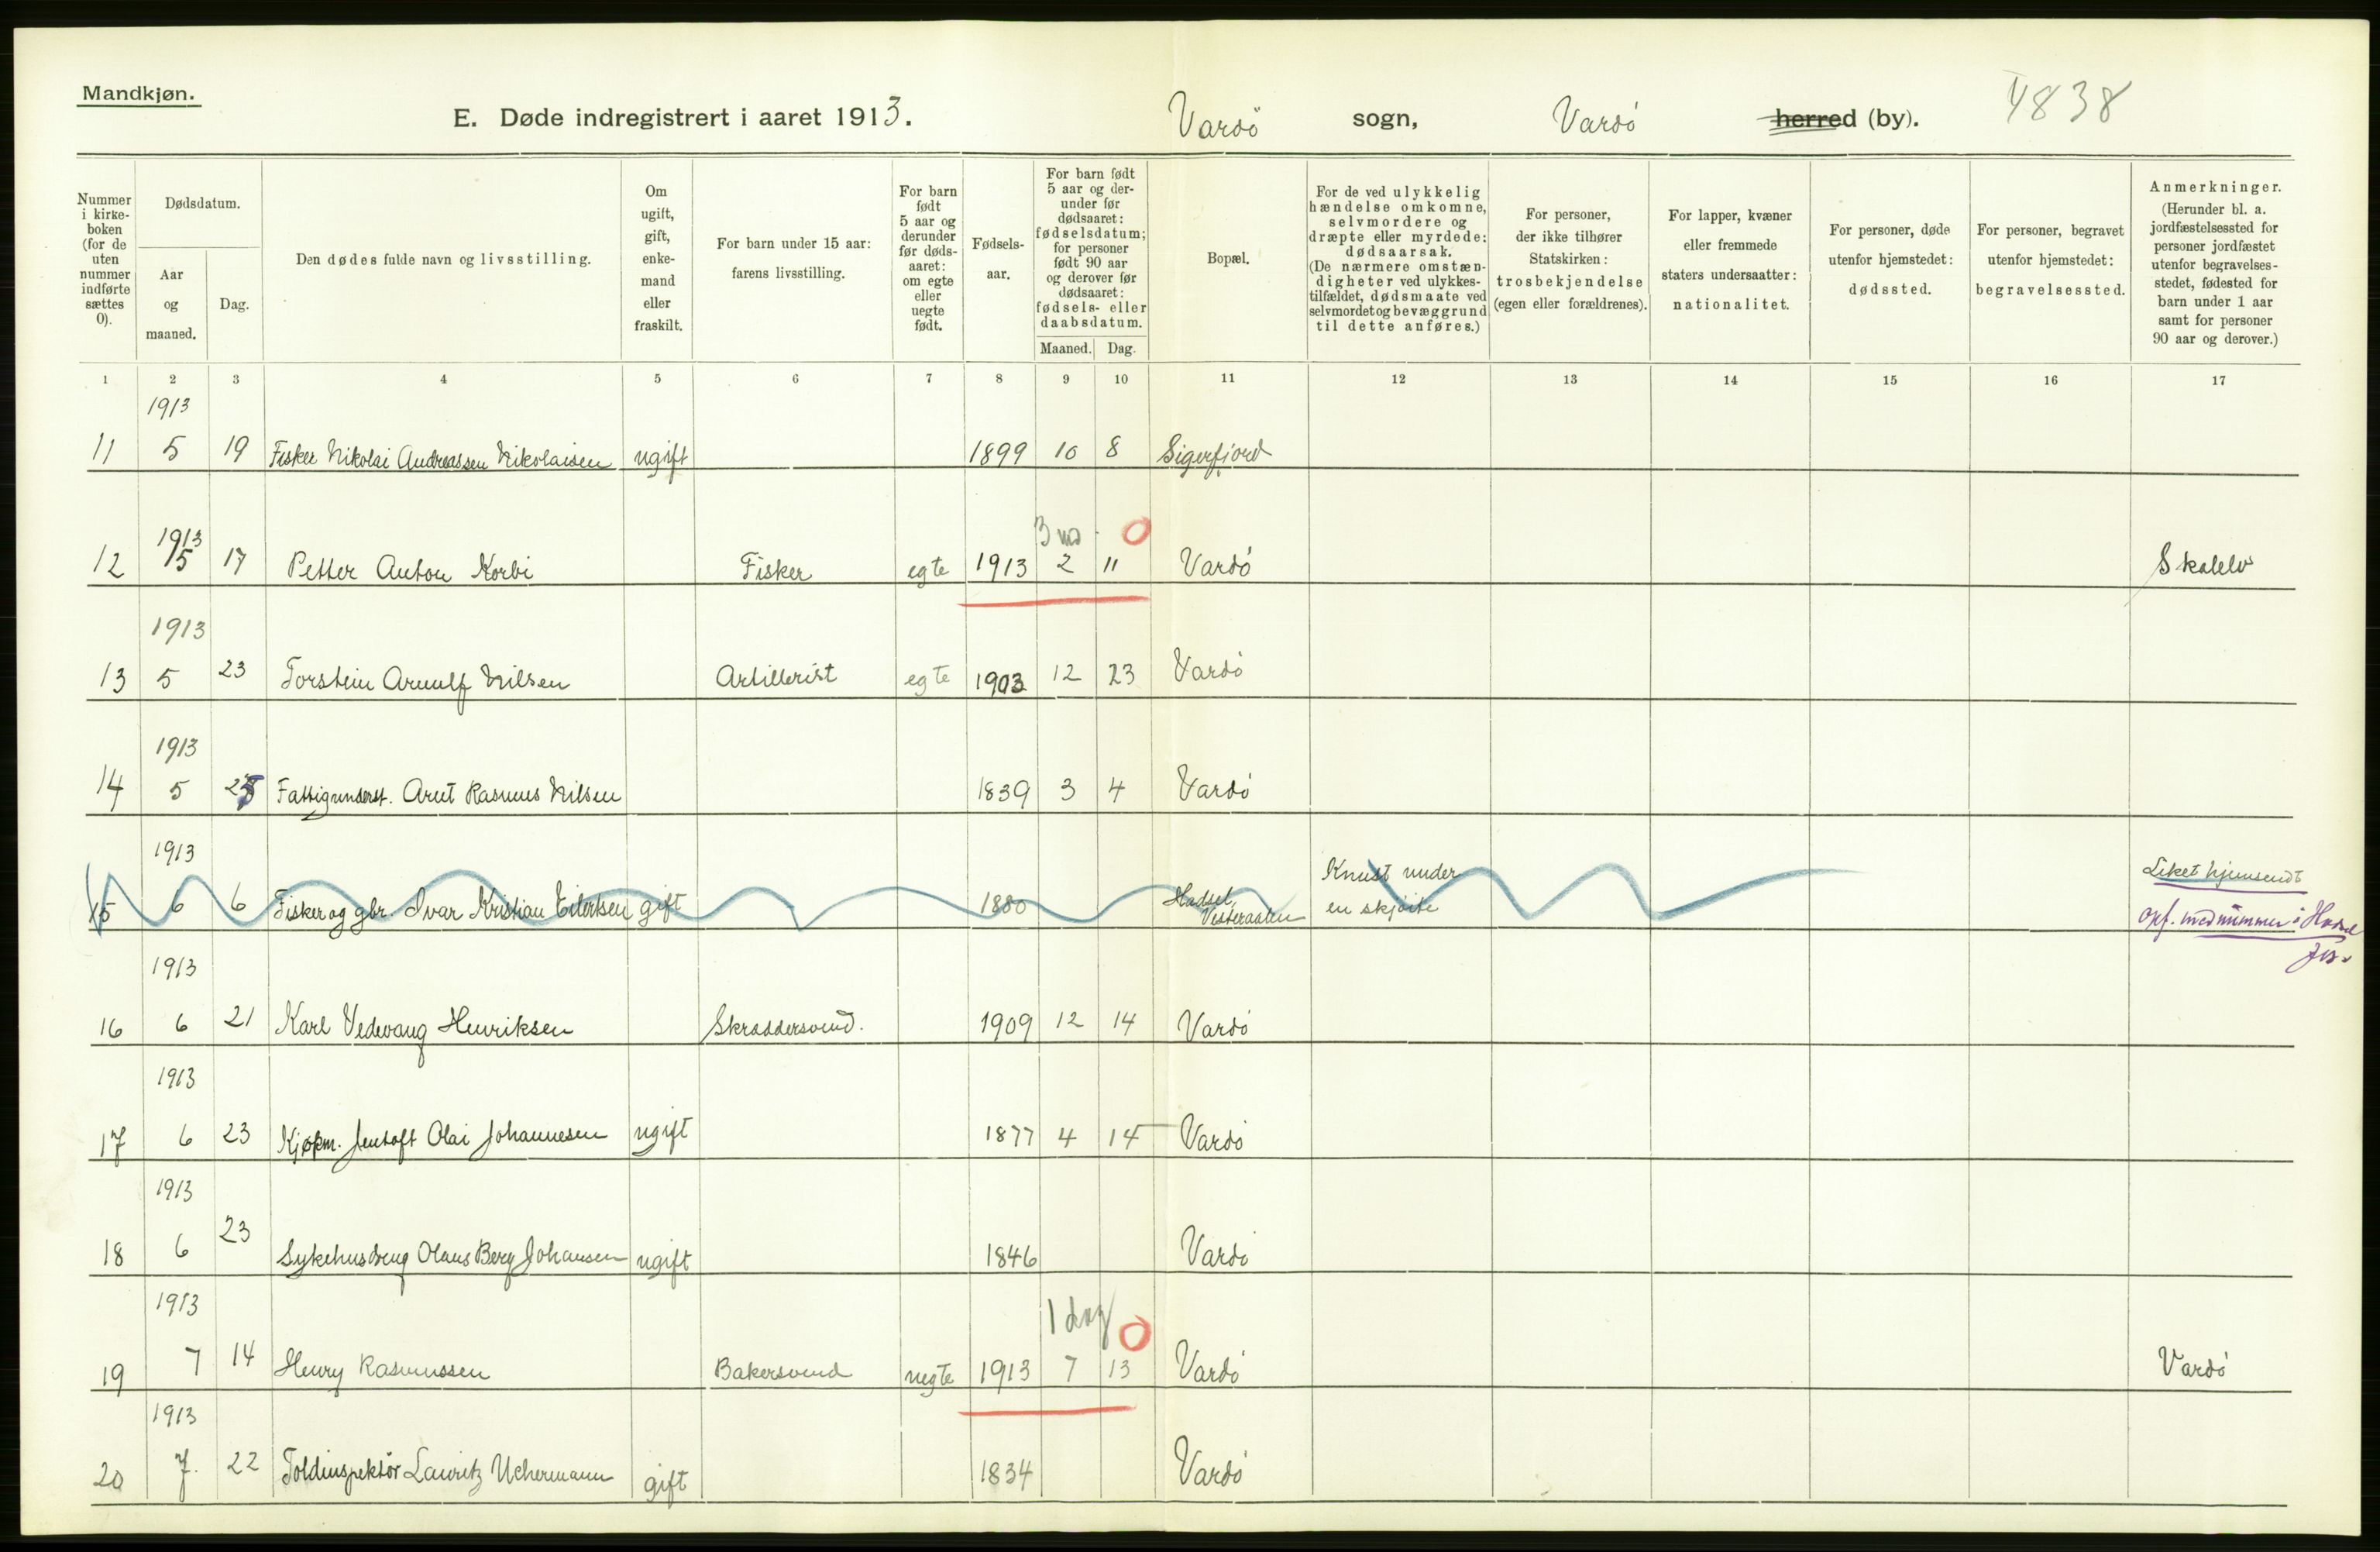 Mandkjøn.
E. Døde indregistrert i aaret 1913. Vardö sogn, Vardö herred (by). 4838
Nummer i kirke-boken (for de uten nummer indførte sættes 0).
Dødsdatum.
Aar og maaned.
Dag.
Den dødes fulde navn og livsstilling.
Om ugift, gift, enke-mand eller fraskilt.
For barn under 15 aar: farens livsstilling.
For barn født 5 aar og derunder før døds-aaret: om egte eller uegte født.
Fødsels-aar.
For barn født 5 aar og der-under før dødsaaret: fødselsdatum; for personer født 90 aar og derover før dødsaaret: fødsels- eller daabsdatum.
Maaned. Dag.
Bopæl.
For de ved ulykkelig hændelse omkomne, selvmordere og dræpte eller myrdede: dødsaarsak. (De nærmere omstæn-digheter ved ulykkes-tilfældet, dødsmaate ved selvmordet og bevæggrund til dette anføres.)
For personer, der ikke tilhører Statskirken: trosbekjendelse (egen eller forældrenes).
For lapper, kvæner eller fremmede staters undersaatter: nationalitet.
For personer, døde utenfor hjemstedet: dødssted.
For personer, begravet utenfor hjemstedet: begravelsessted.
Anmerkninger. (Herunder bl. a. jordfæstelsessted for personer jordfæstet utenfor begravelses-stedet, fødested for barn under 1 aar samt for personer 90 aar og derover.)
1 2 3 4 5 6 7 8 9 10 11 12 13 14 15 16 17
1913
11 5 19 Fisker Nikolai Andreassen Nikolaisen ugift 1899 10 8 Sigerfjord
1913 3 md 0
12 5 17 Petter Anton Korbi Fisker egte 1913 2 11 Vardö Skalelv
1913
13 5 23 Torstein Arnulf Nilsen Artillerist egte 1903 12 23 Vardö
1913
14 5 25 Fattigunderst. Arnt Rasmus Nilsen 1839 3 4 Vardö
1913 Knust under Liket hjemsendt
15 6 6 Fisker og gbr. Ivar Kristian Eilertsen gift 1880 Hadsel, Vesteraalen en skjöite
Opf. med nummer i Hadsel
1913
16 6 21 Karl Vedevang Henriksen Skraddersvend. 1909 12 14 Vardö
1913
17 6 23 Kjøpm. Jentoft Olai Johannesen ugift 1877 4 15 Vardö
1913
18 6 23 Sykehusdreng Olaus Berg Johansen ugift 1846 Vardö
1913 1 dag 0
19 7 14 Henry Rasmussen Bakersvend uegte 1913 7 13 Vardö Vardö
1913
20 7. 22 Toldinspektör Lauritz Uchermann gift 1834 Vardö